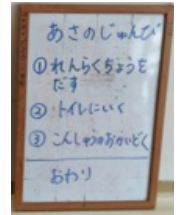 あさのじゅんび
① れんらくちょうを
だす
② トイレにいく
③ こんしゅうのおかいどく
おわり